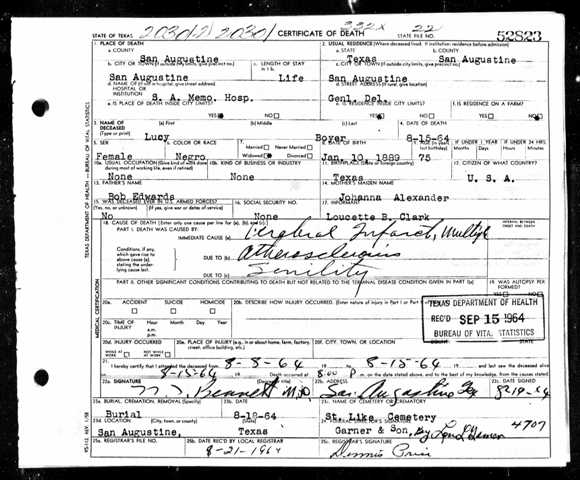 332X 22
STATE OF TEXAS CERTIFICATE OF DEATH STATE FILE NO. 52823
1. PLACE OF DEATH 2. USUAL RESIDENCE (Where deceased lived. If institution: residence before admission)
a. COUNTY a. STATE b. COUNTY
San Augustine Texas San Augustine
b. CITY OR TOWN c. LENGTH OF STAY c. CITY OR TOWN
San Augustine Life San Augustine
HOSPITAL OR d. STREET ADDRESS
INSTITUTION S. A. Memo. Hosp. Genl. Del.
e. IS PLACE OF DEATH INSIDE CITY LIMITS? e. IS RESIDENCE INSIDE CITY LIMITS? f. IS RESIDENCE ON A FARM?
3. NAME OF (a) First (b) Middle (c) Last 4. DATE OF DEATH
DECEASED
(Type or print) Lucy Boyer 8-15-64
5. SEX 6. COLOR OR RACE 7. Married Never Married 8. DATE OF BIRTH
Female Negro Widowed Divorced Jan. 10, 1889 75
10a. USUAL OCCUPATION 10b. KIND OF BUSINESS OR INDUSTRY 12. CITIZEN OF WHAT COUNTRY?
None None Texas U. S. A.
13. FATHER'S NAME 14. MOTHER'S MAIDEN NAME
Bob Edwards Johanna Alexander
15. WAS DECEASED EVER IN U.S. ARMED FORCES? 16. SOCIAL SECURITY NO. 17. INFORMANT
No None Loucette B. Clark
18. CAUSE OF DEATH
PART I. DEATH WAS CAUSED BY:
IMMEDIATE CAUSE (a) Cerebral Infarct, Multiple
Conditions, if any, DUE TO (b) Atherosclerosis
which gave rise to
above cause (a),
stating the under-
lying cause last. DUE TO (c) Senility
PART II. OTHER SIGNIFICANT CONDITIONS CONTRIBUTING TO DEATH BUT NOT RELATED TO THE TERMINAL DISEASE CONDITION GIVEN IN PART I(a) 19. WAS AUTOPSY PERFORMED?
20a. ACCIDENT SUICIDE HOMICIDE 20b. DESCRIBE HOW INJURY OCCURRED.
20c. TIME OF INJURY Hour Month Day Year
a.m.
p.m.
TEXAS DEPARTMENT OF HEALTH
REC'D SEP 15 1964
BUREAU OF VITAL STATISTICS
20d. INJURY OCCURRED 20e. PLACE OF INJURY 20f. CITY, TOWN, OR LOCATION COUNTY STATE
21. I hereby certify that I attended the deceased from 8-8-64 to 8-15-64
8-15-64 Death occurred at 8:00 P m. on the date stated above, and to the best of my knowledge, from the causes stated.
22a. SIGNATURE 22b. ADDRESS 22c. DATE SIGNED
Bennett MD San Augustine Tex 8-19-64
23a. BURIAL, CREMATION, REMOVAL (Specify) 23b. DATE 23c. NAME OF CEMETERY OR CREMATORY
Burial 8-19-64 St. Like. Cemetery
23d. LOCATION (City, town, or county) (State) 24. FUNERAL DIRECTOR'S SIGNATURE
San Augustine, Texas Garner & Son, By 4707
25a. REGISTRAR'S FILE NO. 25b. DATE REC'D BY LOCAL REGISTRAR 25c. REGISTRAR'S SIGNATURE
8-21-1964 Dennis Price
TEXAS DEPARTMENT OF HEALTH — BUREAU OF VITAL STATISTICS
MEDICAL CERTIFICATION